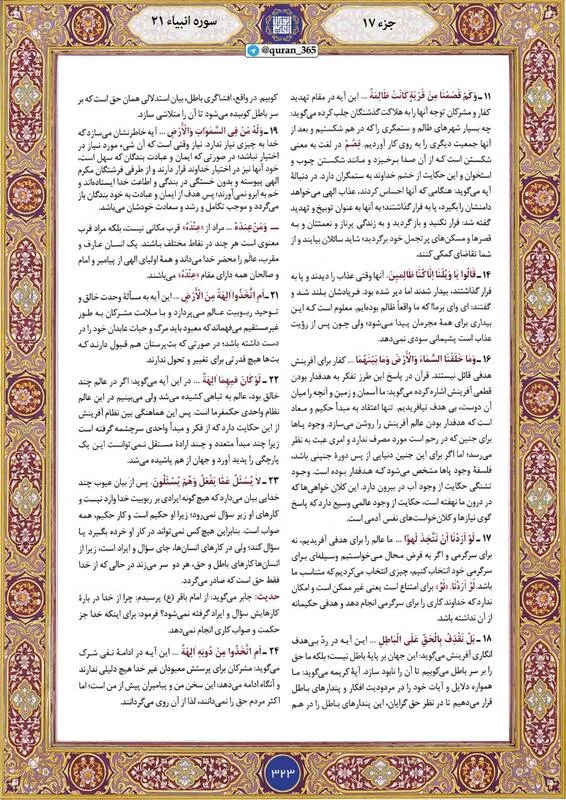 جزء ۱۷
سوره انبیاء ۲۱
@quran_365
۱۱ـ وَكَمْ قَصَمْنَا مِنْ قَرْيَةٍ كَانَتْ ظَالِمَةً ... این آیه در مقام تهدید
کفار و مشرکان توجه آنها را به هلاکت گذشتگان جلب کرده می‌گوید:
چه بسیار شهرهای ظالم و ستمگری را که در هم شکستیم و بعد از
آنها جمعیت دیگری را به روی کار آوردیم. قِصْمْ در لغت به معنی
شکستن است که از آن صدا برخیزد و مانند شکستن چوب و
استخوان و این حکایت از خشم خداوند به ستمگران دارد. در دنبالهٔ
آیه می‌گوید: هنگامی که آنها احساس کردند، عذاب الهی می‌خواهد
دامنشان را بگیرد، پا به فرار گذاشتند؛ به آنها به عنوان توبیخ و تهدید
گفته شد: فرار نکنید و باز گردید و به زندگی پرناز و نعمتتان و به
قصرها و مسکن‌های پر تجمل خود برگردید؛ شاید سائلان بیایند و از
شما تقاضای کمک کنند.
۱۴ـ قَالُوا يَا وَيْلَنَا إِنَّا كُنَّا ظَالِمِينَ. آنها وقتی عذاب را دیدند و پا به
فرار گذاشتند، بیدار شدند اما دیر شده بود. فریادشان بلند شد و
گفتند: ای وای برما! که ما واقعاً ظالم بوده‌ایم. معلوم است که این
بیداری برای همهٔ مجرمان پیدا می‌شود؛ ولی چون پس از رؤیت
عذاب است پشیمانی سودی نمی‌دهد.
۱۶ـ وَمَا خَلَقْنَا السَّمَاءَ وَالْأَرْضَ وَمَا بَيْنَهُمَا ... کفار برای آفرینش
هدفی قائل نیستند. قرآن در پاسخ این طرز تفکر به هدفدار بودن
قطعی آفرینش اشاره کرده می‌گوید: ما آسمان و زمین و آنچه را میان
آن دوست، بی هدف نیافریدیم. تنها اعتقاد به مبدأ حکیم و معاد
است که هدفدار بودن عالم آفرینش را روشن می‌سازد. وجود پاها
برای جنین که در رحم است مورد مصرف ندارد و امری عبث به نظر
می‌رسد؛ اما اگر برای این جنین دنیایی از پس دورهٔ جنینی باشد،
فلسفهٔ وجود پاها مشخص می‌شود که هدفدار بوده است. وجود
تشنگی حکایت از وجود آب در بیرون دارد. این کلان خواهی‌ها که
در درون ما نهفته است، حکایت از وجود عالمی وسیع دارد که پاسخ
گوی نیازها و کلان‌خواست‌های نفس آدمی است.
۱۷ـ لَوْ أَرَدْنَا أَنْ نَتَّخِذَ لَهْوًا ... ما عالم را برای هدفی آفریدیم، نه
برای سرگرمی و اگر به فرض محال می‌خواستیم وسیله‌ای برای
سرگرمی خود انتخاب کنیم، چیزی انتخاب می‌کردیم که متناسب ما
باشد. لَوْ أَرَدْنَا، «لَوْ» برای امتناع است یعنی غیر ممکن است و امکان
ندارد که خداوند کاری را برای سرگرمی انجام دهد و هدفی حکیمانه
از آن نداشته باشد.
۱۸ـ بَلْ نَقْذِفُ بِالْحَقِّ عَلَى الْبَاطِلِ ... این آیه در ردّ بی‌هدف
انگاری آفرینش می‌گوید: این جهان بر پایهٔ باطل نیست؛ بلکه ما حق
را بر سر باطل می‌کوبیم تا آن را نابود سازد. آیهٔ کریمه می‌گوید: ما
همواره دلایل و آیات خود را در مردودیت افکار و پندارهای باطل
قرار می‌دهیم تا در نظر حق گرایان، این پندارهای باطل را در هم
کوبیم. در واقع، افشاگری باطل، بیان استدلالی همان حق است که بر
سر باطل کوبیده می‌شود تا آن را متلاشی سازد.
۱۹ـ وَلَهُ مَنْ فِي السَّمَوَاتِ وَالْأَرْضِ ... آیه خاطرنشان می‌سازد که
خدا به چیزی نیاز ندارد. نیاز وقتی است که آن شیء مورد نیاز در
اختیار نباشد؛ در صورتی که ایمان و عبادت بندگان که سهل است،
خود آنها نیز در اختیار خداوند قرار دارند و از طرفی فرشتگان مکرم
الهی پیوسته و بدون خستگی در بندگی و اطاعت خدا ایستاده‌اند و
خم به ابرو نمی‌آورند؛ پس هدف از ایمان و عبادت به خود بندگان باز
می‌گردد و موجب تکامل و رشد و سعادت خودشان می‌باشد.
ـــ وَمَنْ عِنْدَهُ ... مراد از «عِنْدَهُ» قرب مکانی نیست، بلکه مراد قرب
معنوی است هر چند در نقاط مختلف باشند. یک انسان عارف و
مقرب، عالَم را محضر خدا می‌داند و همهٔ اولیای الهی از پیامبر و امام
و صالحان همه دارای مقام «عِنْدَهُ» می‌باشند.
۲۱ـ أَمِ اتَّخَذُوا آلِهَةً مِنَ الْأَرْضِ ... این آیه به مسألهٔ وحدت خالق و
توحید ربوبیت عالم می‌پردازد و با ملامت مشرکان به طور
غیرمستقیم می‌فهماند که معبود باید مرگ و حیات عابدان خود را در
دست داشته باشد؛ در صورتی که بت‌پرستان هم قبول دارند که
بت‌ها هیچ قدرتی برای تغییر و تحول ندارند.
۲۲ـ لَوْ كَانَ فِيهِمَا آلِهَةٌ ... در این آیه می‌گوید: اگر در عالم چند
خالق بود، عالم به تباهی کشیده می‌شد ولی می‌بینیم در این عالم
نظام واحدی حکمفرما است. پس این هماهنگی بین نظام آفرینش
از این حکایت دارد که از فکر و مبدأ واحدی سرچشمه گرفته است
زیرا چند مبدأ متعدد و چند ارادهٔ مستقل نمی‌توانست این یک
پارچگی را پدید آورد و جهان از هم پاشیده می‌شد.
۲۳ـ لَا يُسْئَلُ عَمَّا يَفْعَلُ وَهُمْ يُسْئَلُونَ. پس از بیان عیوب چند
خدایی بیان می‌دارد که هیچ گونه ایرادی بر ربوبیت خدا وارد نیست و
کارهای او زیر سؤال نمی‌رود؛ زیرا او حکیم است و کار حکیم، همه
صواب است. بنابراین هیچ کس نمی‌تواند در کار او خرده بگیرد یا
سؤال کند؛ ولی در کارهای انسان‌ها، جای سؤال و ایراد است، زیرا از
انسان‌ها کارهای باطل و حق، هر دو سر می‌زند در حالی که از خدا
فقط حق است که صادر می‌گردد.
حدیث: جابر می‌گوید: از امام باقر (ع) پرسیدم: چرا از خدا در بارهٔ
کارهایش سؤال و ایراد گرفته نمی‌شود؟ فرمود: برای اینکه خدا جز
حکمت و صواب کاری انجام نمی‌دهد.
۲۴ـ أَمِ اتَّخَذُوا مِنْ دُونِهِ آلِهَةً ... این آیه در ادامهٔ نفی شرک
می‌گوید: مشرکان برای پرستش معبودان غیر خدا هیچ دلیلی ندارند
و آنگاه ادامه می‌دهد: این سخن من و پیامبران پیش از من است؛ اما
اکثر مردم حق را نمی‌دانند، لذا از آن روی می‌گردانند.
۳۲۳